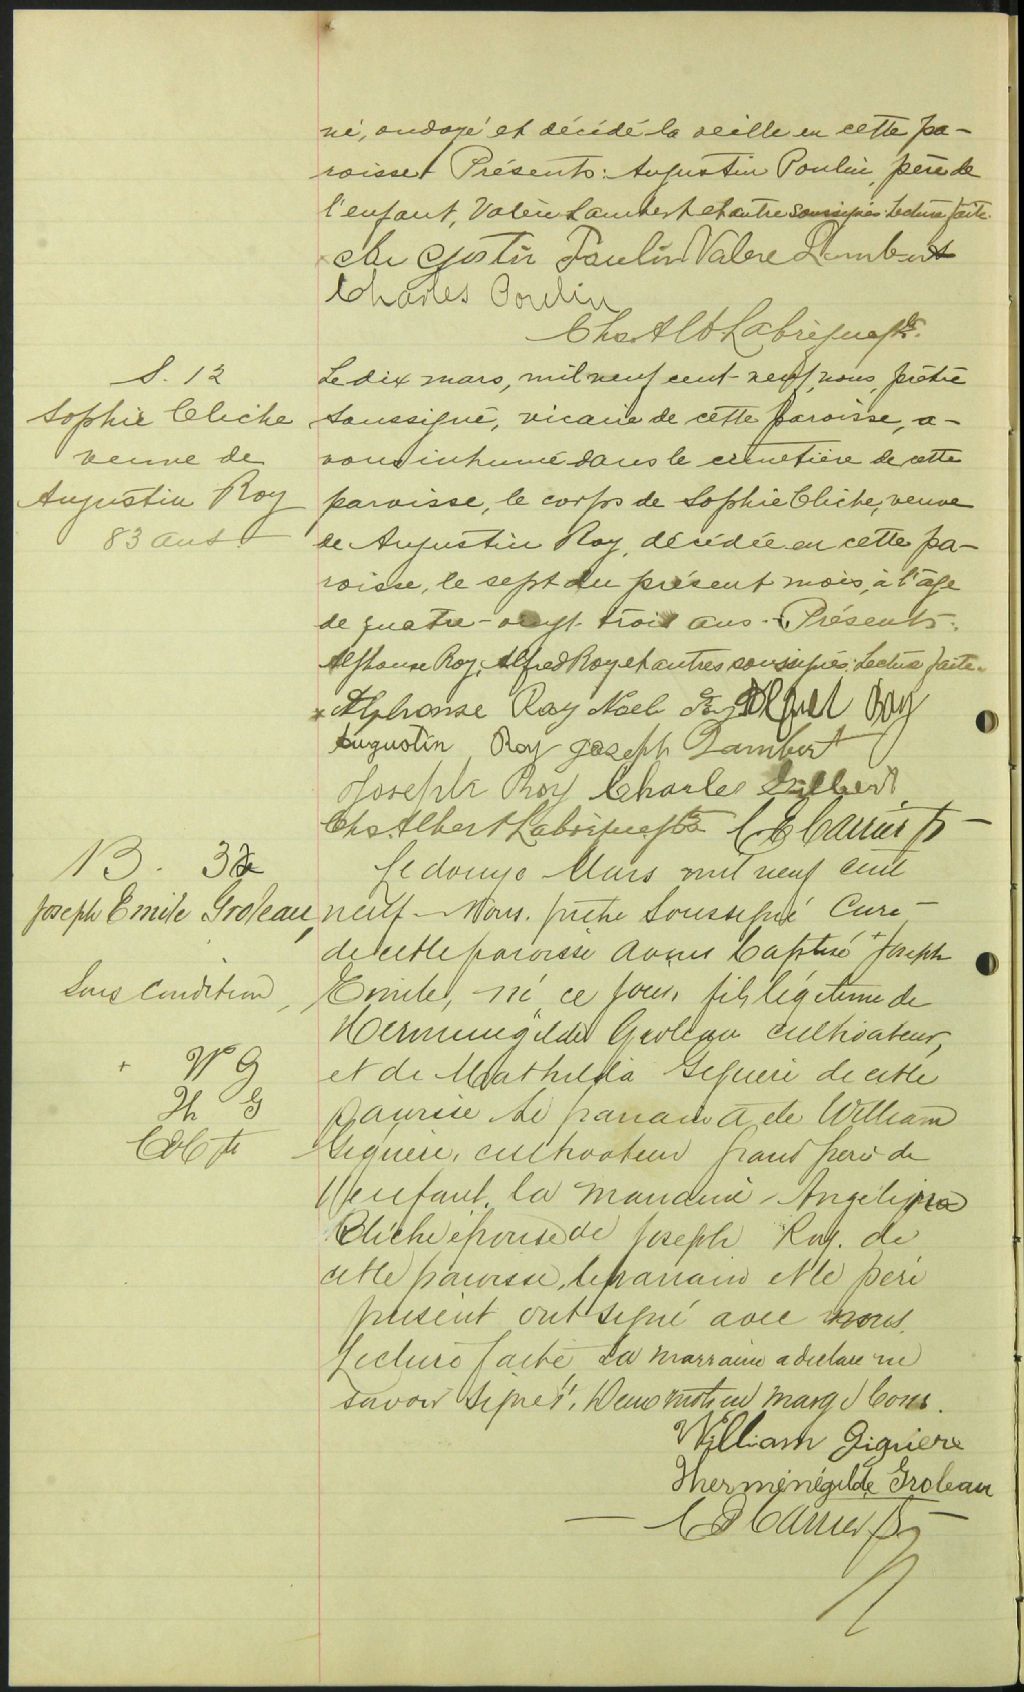 né, ondoyé et décédé la veille en cette pa-
roisse. Présents: Augustin Poulin, père de
l'enfant, Valère Lambert et autre soussignés. Lecture faite.
Au gustin Poulin Valere Lambert
Charles Poulin
Chs. Alb Labrèque ptre.
S. 12
Sophie Cliche
veuve de
Augustin Roy
83 ans.
Le dix mars, mil neuf cent neuf, nous, prêtre
soussigné, vicaire de cette paroisse, a-
vons inhumé dans le cimetière de cette
paroisse, le corps de Sophie Cliche, veuve
de Augustin Roy, décédée en cette pa-
roisse, le sept du présent mois, à l'âge
de quatre-vingt-trois ans. Présents:
Alphonse Roy, Alfred Roy et autres soussignés. Lecture faite.
Alphonse Roy Noël Roy Alfred Roy
Augustin Roy Joseph Lambert
Joseph Roy Charles Gilbert
Chs. Albert Labrèque ptre Carrier ptr
B. 32
Joseph Emile Groleau,
Sous condition,
+ W G
Th G
Le douze Mars mil neuf cent
neuf - Nous. prêtre Soussigné Curé
de cette paroisse avons baptisé + Joseph
Emile, né ce jour, fils légitime de
Herménégilde Groleau cultivateur,
et de Mathilda Giguère de cette
paroisse Le parrain a été William
Giguère, cultivateur grand père de
l'enfant, la marraine - Angélina
Cliche épouse de Joseph Roy. de
cette paroisse, le parrain et le père
présent ont signé avec nous.
Lecture faite La marraine a déclaré ne
savoir signer. Deux mots en marge bons.
William Giguère
Therménégilde Groleau
Carrier ptr